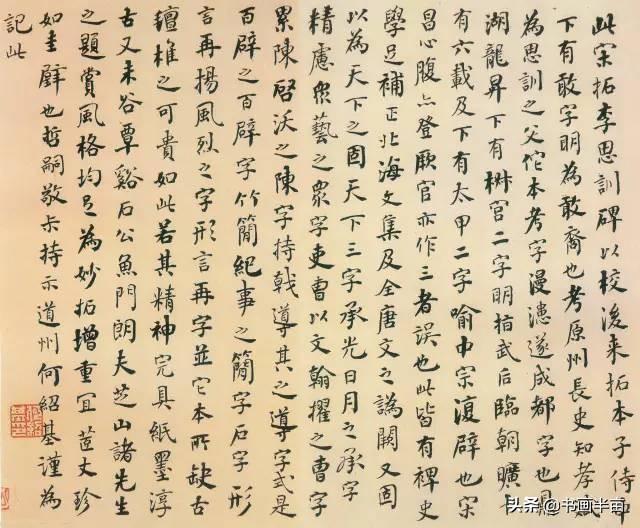 此宋拓李思訓碑以校後来拓本子侍
下有敢字明為敢裔也考原州長史知孝感
為思訓之父佗本考字漫漶遂成都字也鼎
湖龍昇下有椒宫二字明指武后臨朝曠
有六載及下有太甲二字喻中宗復辟也宋
昌心腹亦登厥官亦作三者誤也此皆有裨史
學足補正北海文集及全唐文之譌闕又固
以為天下之固天下三字承光日月之承字
精慮眾藝之眾字吏曹以文翰擢之曹字
累陳啓沃之陳字持戟導其之導字式是
百辟之百辟字竹簡紀事之簡字石字形
言再揚風烈之字形言再字並它本所缺古
氊椎之可貴如此若其精神完具紙墨淳
古又未谷覃谿石公魚門朗夫芝山諸先生
之題賞風格均足為妙拓增重宜丈珍
如圭璧也哲嗣敬持示道州何紹基謹為
記此
头条 @书画半亩